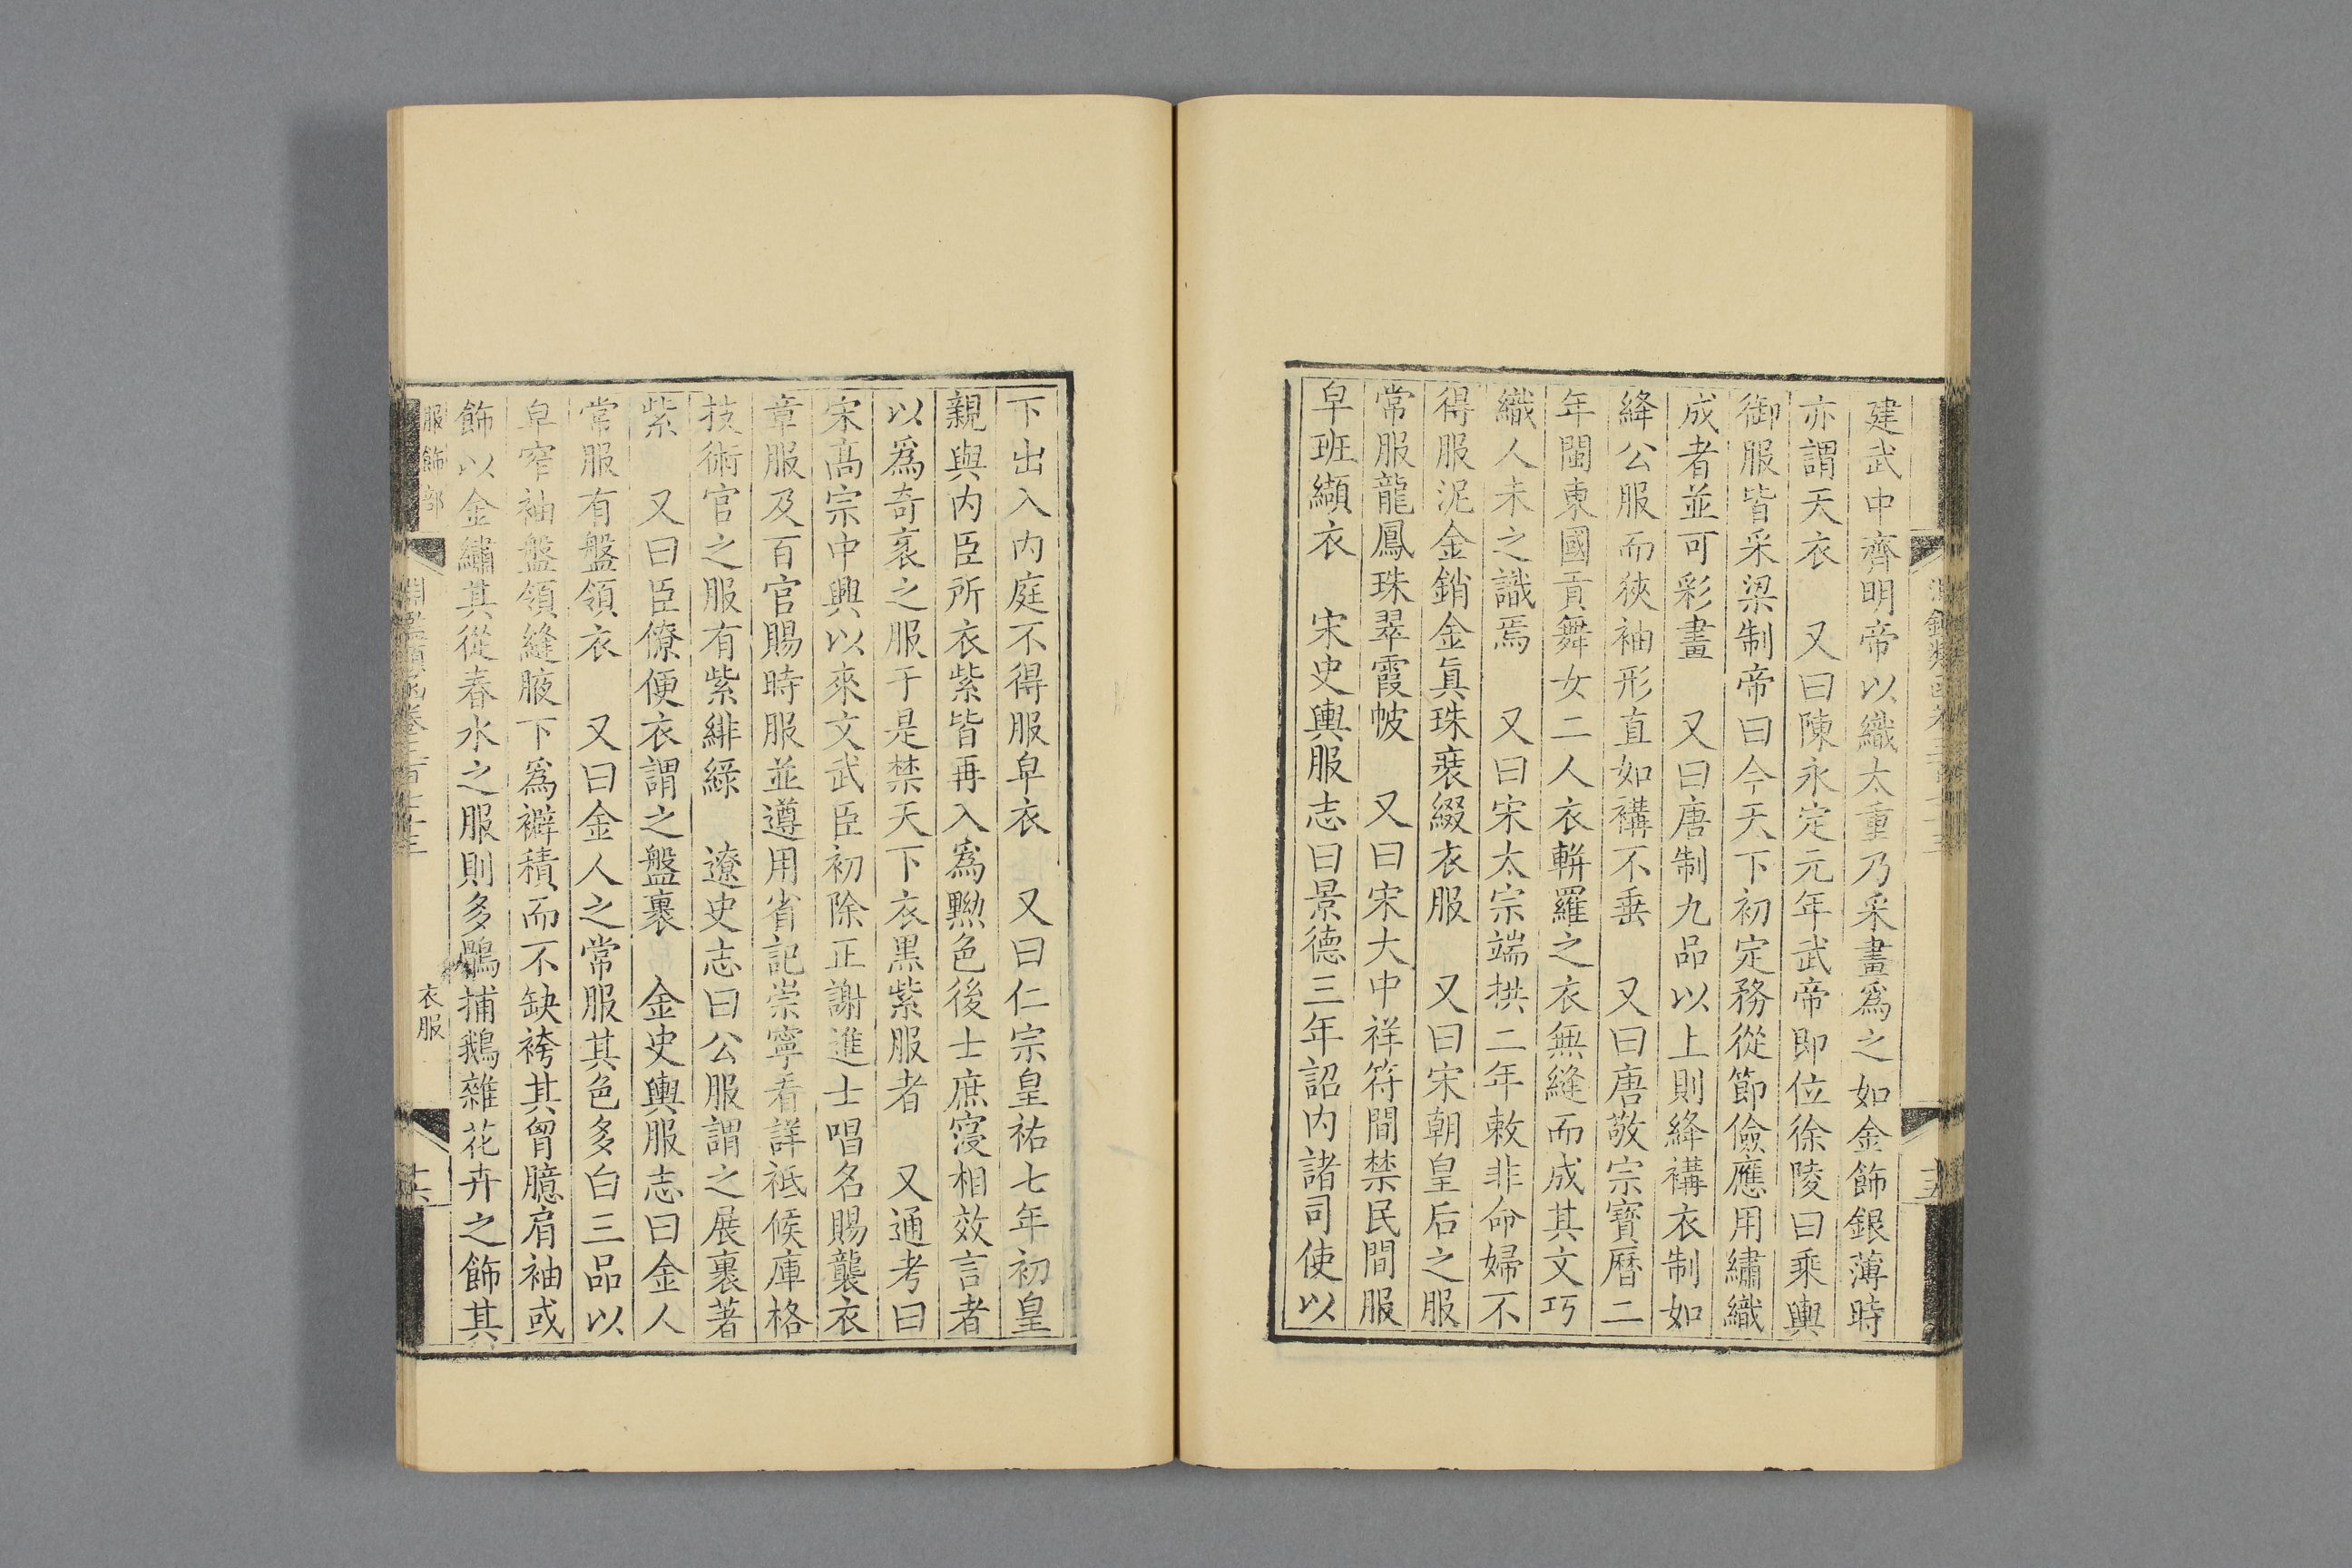 建武中齊明帝以織太重乃采畫爲之如金飾銀薄時
亦謂天衣　又曰陳永定元年武帝即位徐陵曰乘輿
御服皆采梁制帝曰今天下初定務從節儉應用繡織
成者並可彩畫　又曰唐制九品以上則絳褠衣制如
絳公服而狹袖形直如褠不垂　又曰唐敬宗寶曆二
年閩東國貢舞女二人衣軿羅之衣無縫而成其文巧
織人未之識焉　又曰宋太宗端拱二年敕非命婦不
得服泥金銷金眞珠裝綴衣服　又曰宋朝皇后之服
常服龍鳳珠翠霞帔　又曰宋大中祥符間禁民間服
皁班纈衣　宋史輿服志曰景德三年詔内諸司使以
下出入内庭不得服皁衣　又曰仁宗皇祐七年初皇
親與内臣所衣紫皆再入爲黝色後士庶寖相效言者
以爲奇衺之服于是禁天下衣黑紫服者　又通考曰
宋高宗中興以來文武臣初除正謝進士唱名賜襲衣
章服及百官賜時服並遵用省記崇寧看詳祗候庫格
技術官之服有紫緋綠　遼史志曰公服謂之展裹著
紫　又曰臣僚便衣謂之盤裹　金史輿服志曰金人
常服有盤領衣　又曰金人之常服其色多白三品以
皁窄袖盤領縫腋下爲襞積而不缺袴其胷臆肩袖或
飾以金繡其從春水之服則多鶻捕鵝雜花卉之飾其
服飾部
衣服